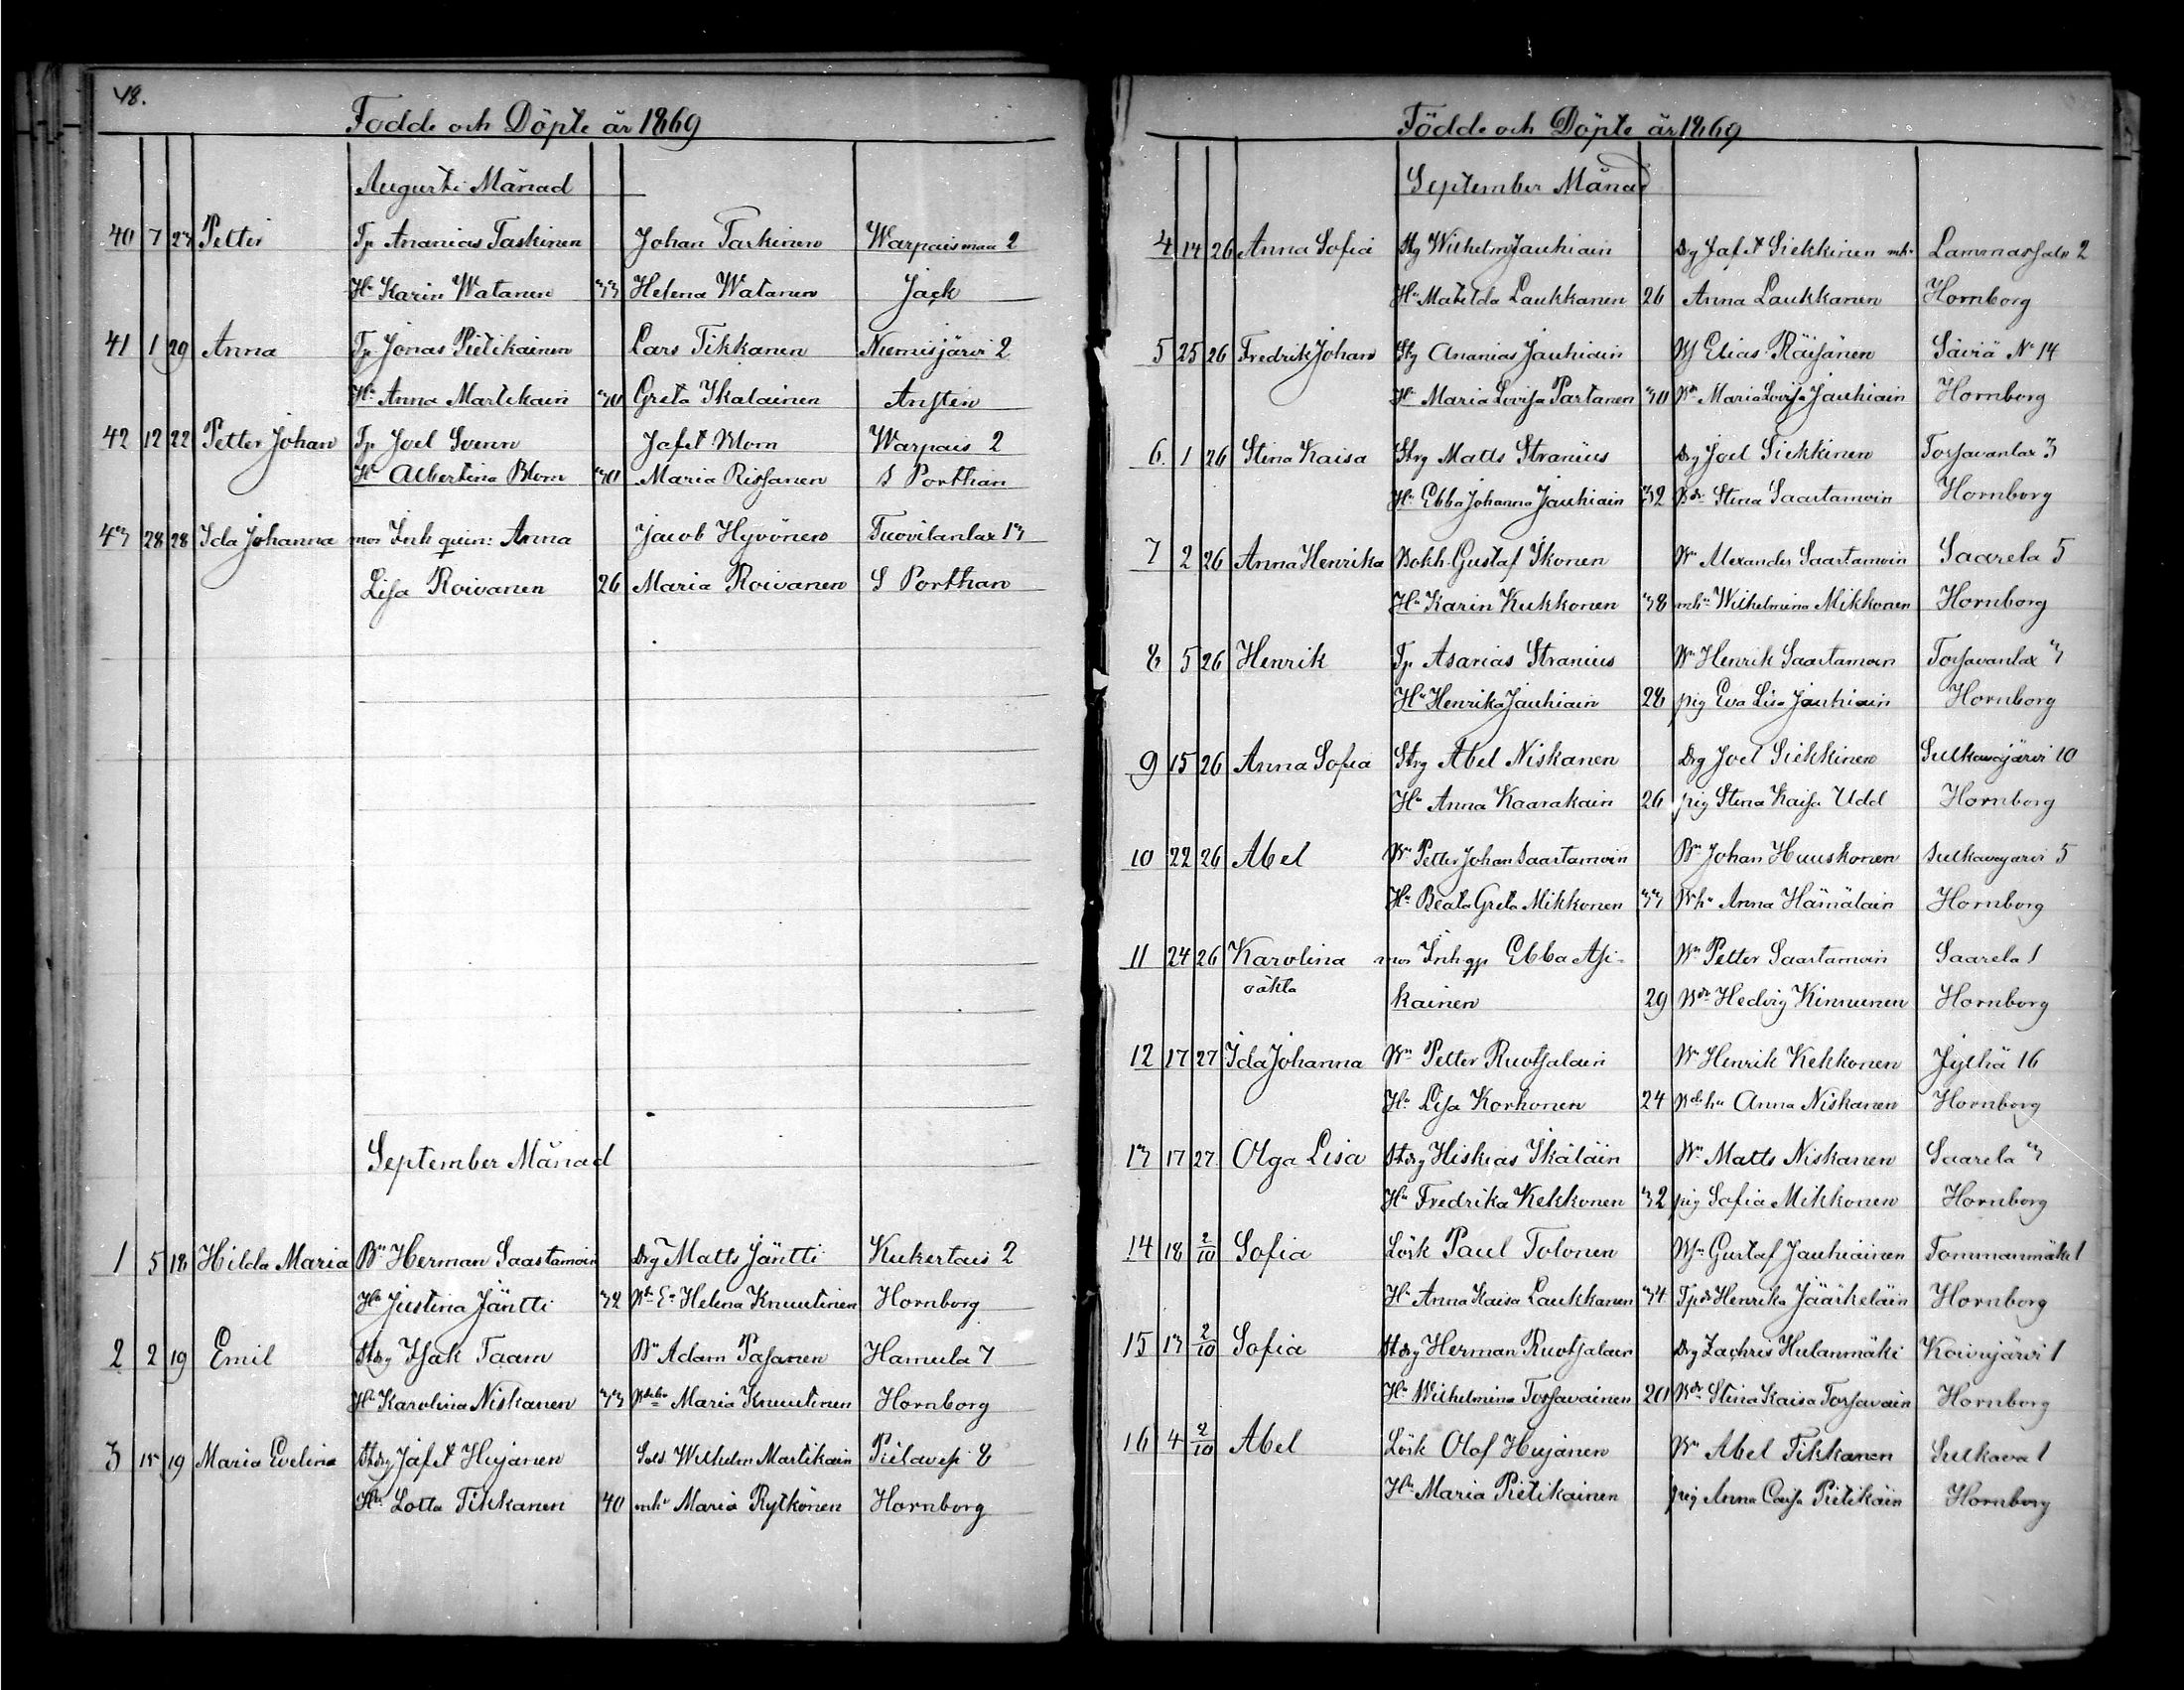 48.
Födde och Döpte år 1869
Augusti Månad
40 7 23 Petter Tp Ananias Taskinen Johan Tarkinen Warpaismaa 2
Hu Karin Watanen 33 Helena Watanen Jack
41 1 29 Anna Tp Jonas Pietikainen Lars Tikkanen Niemisjärvi 2
Hu Anna Martikain 30 Greta Ikalainen
42 12 22 Petter Johan Tp Joel Svenn Jafet Blom Warpais 2
Hu Albertina Blom 30 Maria Rissanen S Porthan
43 28 28 Ida Johanna mor Inh quin: Anna Jacob Hyvönen Tuovilanlax 13
Lisa Roivanen 26 Maria Roivanen S Porthan
September Månad
1 5 18 Hilda Maria Bn Herman Saastamoin Drg Matts Jäntti Kukertais 2
Hu Justina Jäntti 32 Helena Knuutinen Hornborg
2 2 19 Emil Stdrg Isak Taam Bn Adam Pasanen Hamula 7
Hu Karolina Niskanen 33 Maria Knuutinen Hornborg
3 15 19 Maria Evelina Stdrg Jafet Hujanen Sold. Wilhelm Martikain Pielavesi 8
Hu Lotta Tikkanen 40 mhu Maria Rytkönen Hornborg
Födde och Döpte år 1869
September Månad
4 14 26 Anna Sofia Wilhelm Jauhiain Drg Jafet Siekkinen Lammassalo 2
Hu Matilda Laukkanen 26 Anna Laukkanen Hornborg
5 25 26 Fredrik Johan Ananias Jauhiain Elias Räisänen Säviä No 14
Hu Maria Lovisa Partanen 30 Maria Lovisa Jauhiain Hornborg
6. 1 26 Stina Kaisa Matts Stranius Drg Joel Siekkinen Torsavanlax 3
Hu Ebba Johanna Jauhiain 32 Bdr Stina Saastamoin Hornborg
7 2 26 Anna Henrika Bokh. Gustaf Ikonen Bn Alexander Saastamoin Saarela 5
Hu Karin Kukkonen 38 mhu Wilhelmina Mikkonen Hornborg
8 5 26 Henrik Tp Asarias Stranius Bn Henrik Saastamoin Torsavanlax 3
Hu Henrika Jauhiain 28 pig Eva Lisa Jauhiain Hornborg
9 15 26 Anna Sofia Abel Niskanen Drg Joel Siekkinen Sulkavajärvi 10
Hu Anna Kaarakain 26 pig Stina Kaisa Udd Hornborg
10 22 26 Abel Bn Petter Johan Saastamoin Bn Johan Huuskonen Sulkavajärvi 5
Hu Beata Greta Mikkonen 33 Bhu Anna Hämäläin Hornborg
11 24 26 Karolina mor Inh qp Ebba Asi- Bn Petter Saastamoin Saarela 1
oäkta kainen 29 Bdr Hedvig Kinnunen Hornborg
12 17 27 Ida Johanna Bn Petter Ruotsalain Bn Henrik Kekkonen Jylhä 16
Hu Lisa Korhonen 24 Anna Niskanen Hornborg
13 17 27 Olga Lisa Stdrg Hiskias Ikäläin Bn Matts Niskanen Saarela 3
Hu Fredrika Kekkonen 32 pig Sofia Mikkonen Hornborg
14 18 2/10 Sofia Lösk Paul Tolonen Gustaf Jauhiainen Tommanmäki 1
Hu Anna Kaisa Laukkanen 34 Tpdr Henrika Jääskeläin Hornborg
15 13 2/10 Sofia Stdrg Herman Ruotsalain Drg Zachris Hulanmäki Koivujärvi 1
Hu Wilhelmina Torsavainen 20 Bdr Stina Kaisa Torsavain Hornborg
16 4 2/10 Abel Lösk Olof Hujanen Bn Abel Tikkanen Sulkava 1
Hu Maria Pietikainen pig Anna Caisa Pietikäin Hornborg